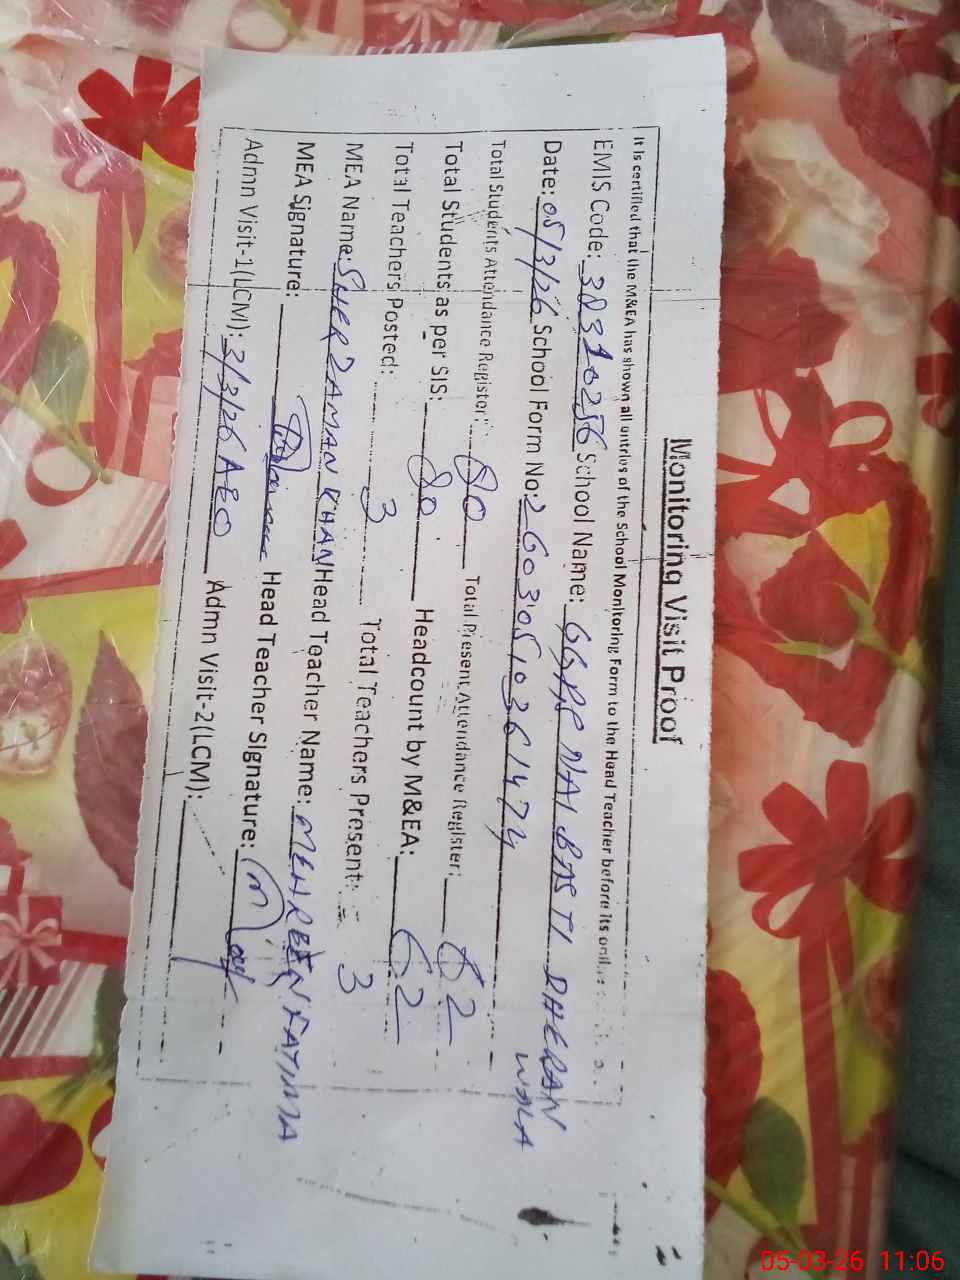 Monitoring Visit Proof
It is certified that the M&EA has shown all entries of the School Monitoring Form to the Head Teacher before its
EMIS Code: 38310256 School Name: GGPS NAI BASTI DHERAN WALA
Date: 05/3/26 School Form No: 26030510261474
Total Students Attendance Register: 80 Total Present Attendance Register: 62
Total Students as per SIS: 80 Headcount by M&EA: 62
Total Teachers Posted: 3 Total Teachers Present: 3
MEA Name: SHER ZAMAN KHAN Head Teacher Name: MEHREEN FATIMA
MEA Signature: Head Teacher Signature:
Admn Visit-1(LCM): 3/3/26 AEO Admn Visit-2(LCM):
05-03-26 11:06